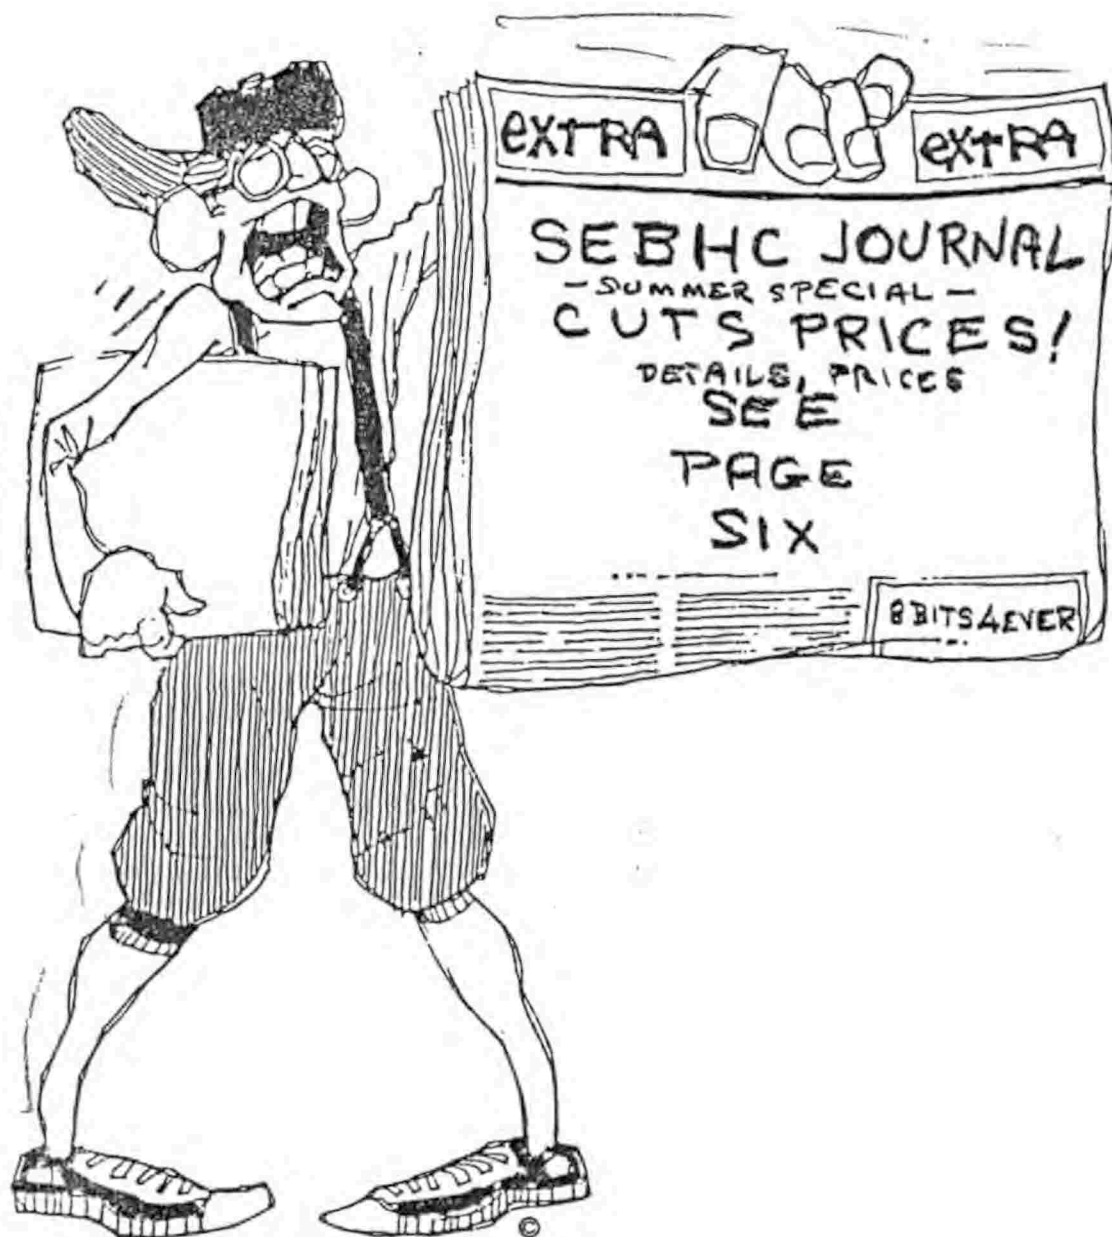 eXTRA eXTRA
SEBHC JOURNAL
- SUMMER SPECIAL -
CUTS PRICES!
DETAILS, PRICES
SEE
PAGE
SIX
8 BITS 4 EVER
©